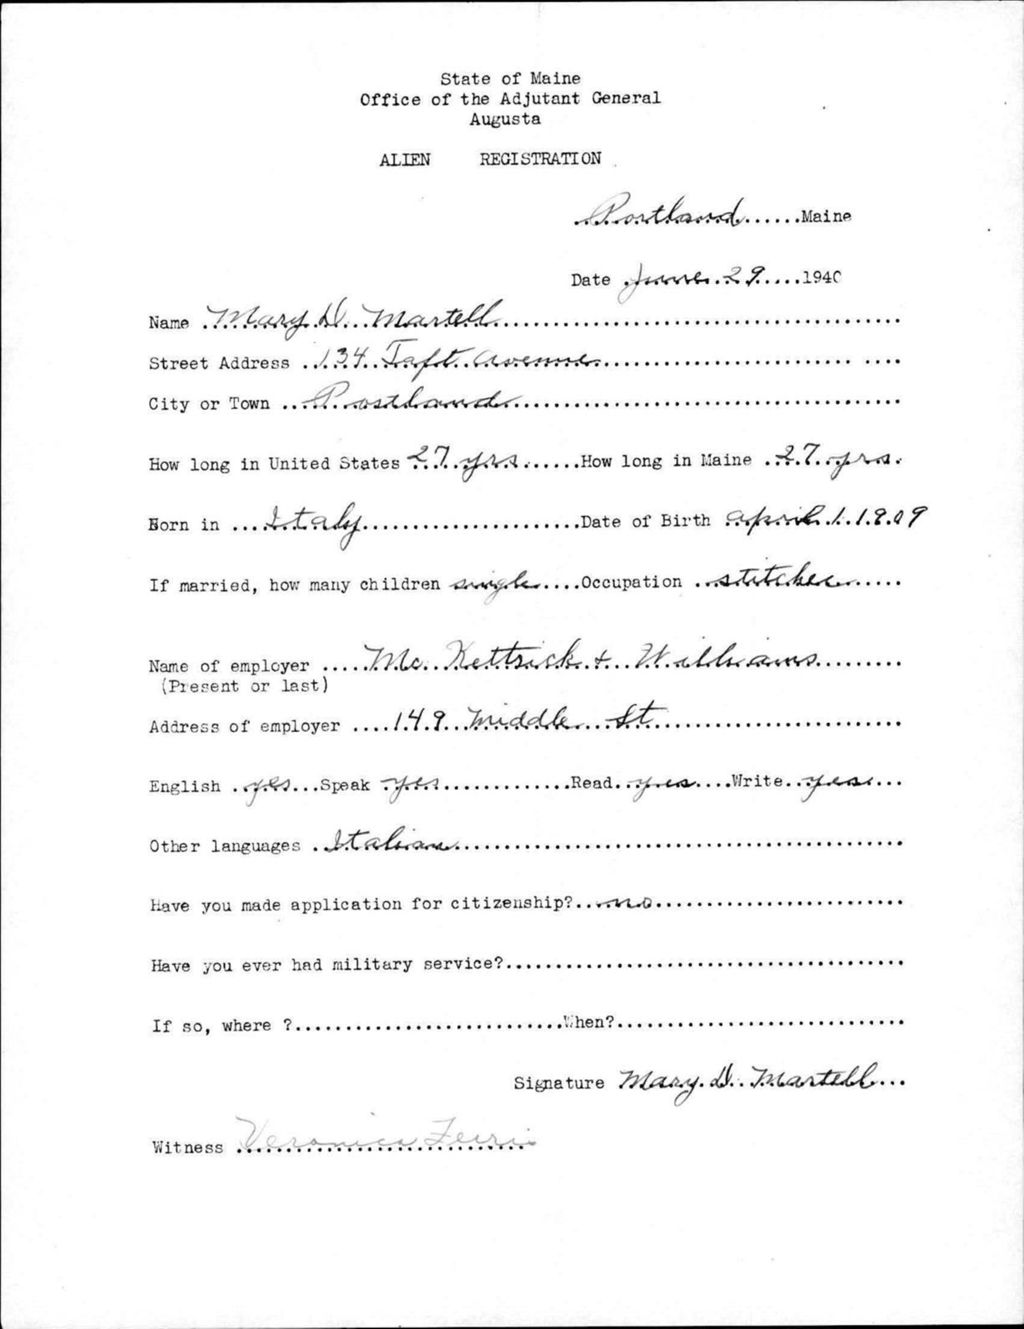 State of Maine
Office of the Adjutant General
Augusta
ALIEN REGISTRATION
Portland......Maine
Date June 29.....1940
Name Mary D. Martell
Street Address 134 Taft Avenue
City or Town Portland
How long in United States 27 yrs......How long in Maine 27 yrs.
Born in Italy......Date of Birth April 1 1909
If married, how many children single.....Occupation stitcher
Name of employer Mc Kettrick + Williams
(Present or last)
Address of employer 149 Middle St
English yes...Speak yes......Read yes....Write yes
Other languages Italian
Have you made application for citizenship? no
Have you ever had military service?
If so, where ?......When?
Signature Mary D. Martell
Witness Veronica